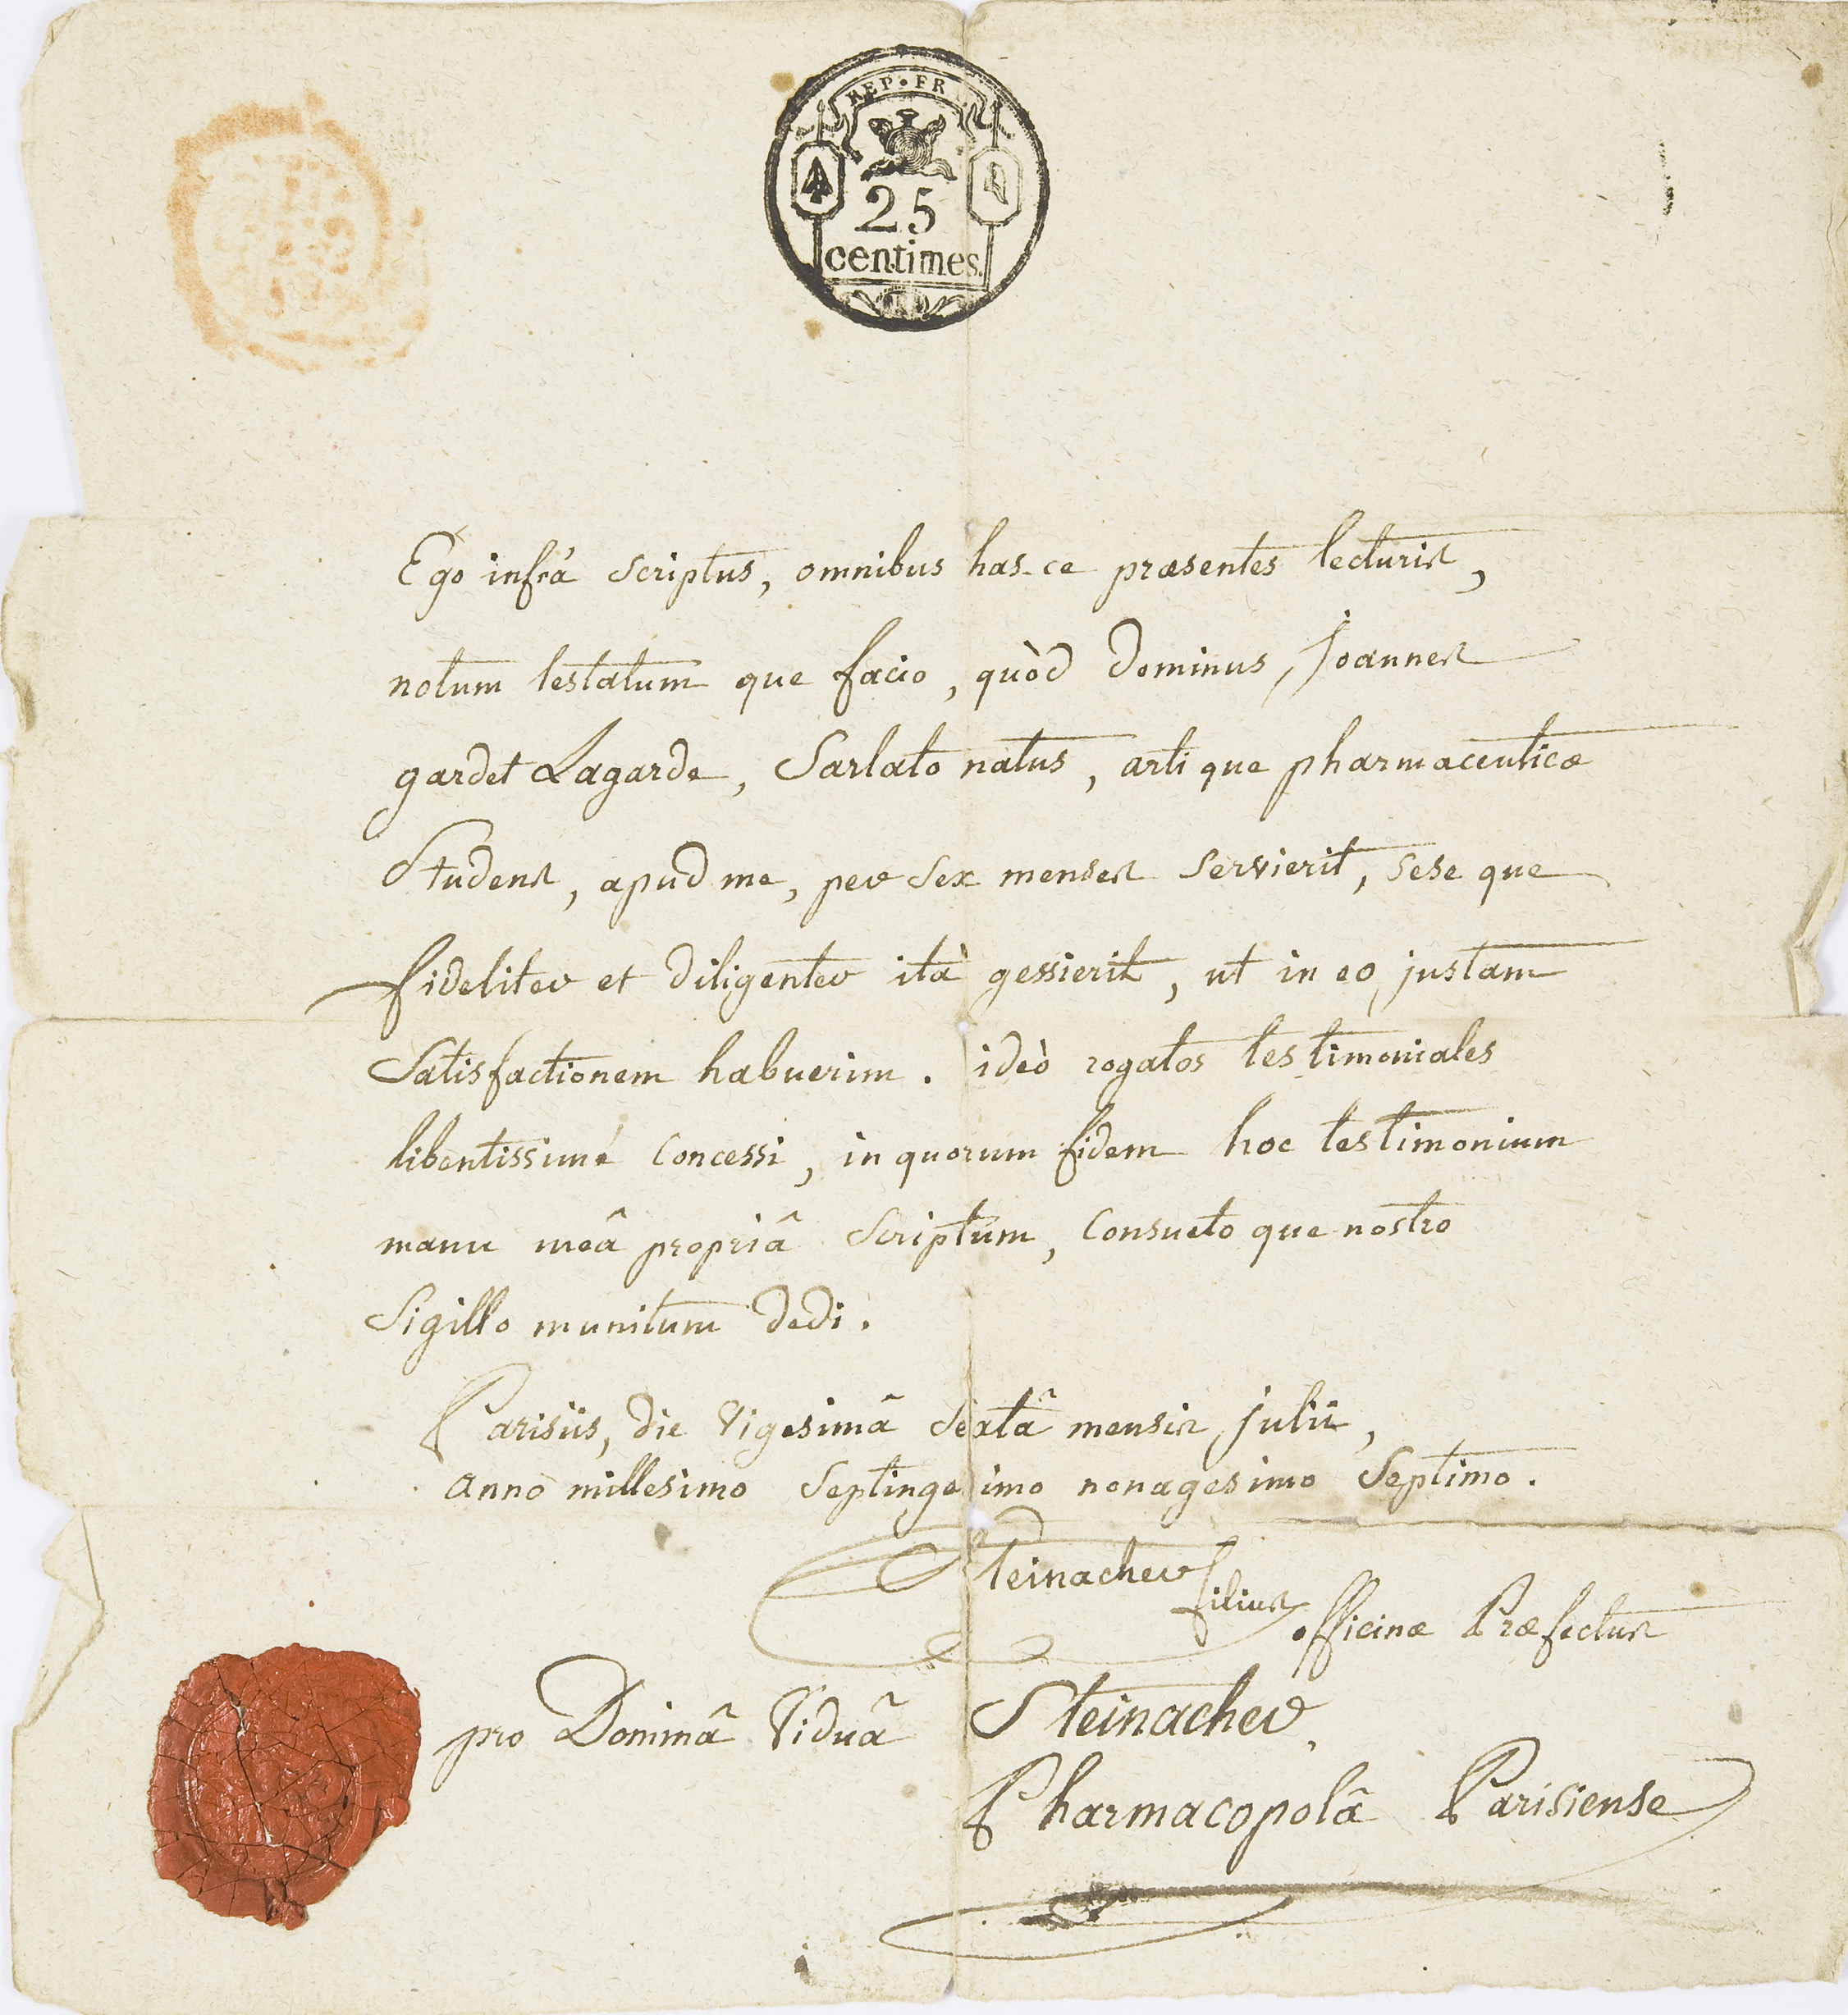 REP • FR
25
centimes.
Ego infrà scriptus, omnibus has-ce præsentes lecturis,
notum testatum que facio, quòd dominus, Joannes
gardet Lagarde, Sarlato natus, arti que pharmaceuticæ
Studens, apud me, per sex menses servierit, sese que
fideliter et diligenter ità gessierit, ut in eo, justam
Satisfactionem habuerim. ideò rogatos testimoniales
libentissimé concessi, in quorum fidem hoc testimonium
manu meâ propriâ scriptum, consueto que nostro
Sigillo munitum dedi.
Parisiis, die vigesimâ sextâ mensis, julii,
anno millesimo septingesimo nonagesimo septimo.
Steinacher
filius officinæ Præfectus
pro Dominâ Viduâ Steinacher,
Pharmacopolâ Parisiense